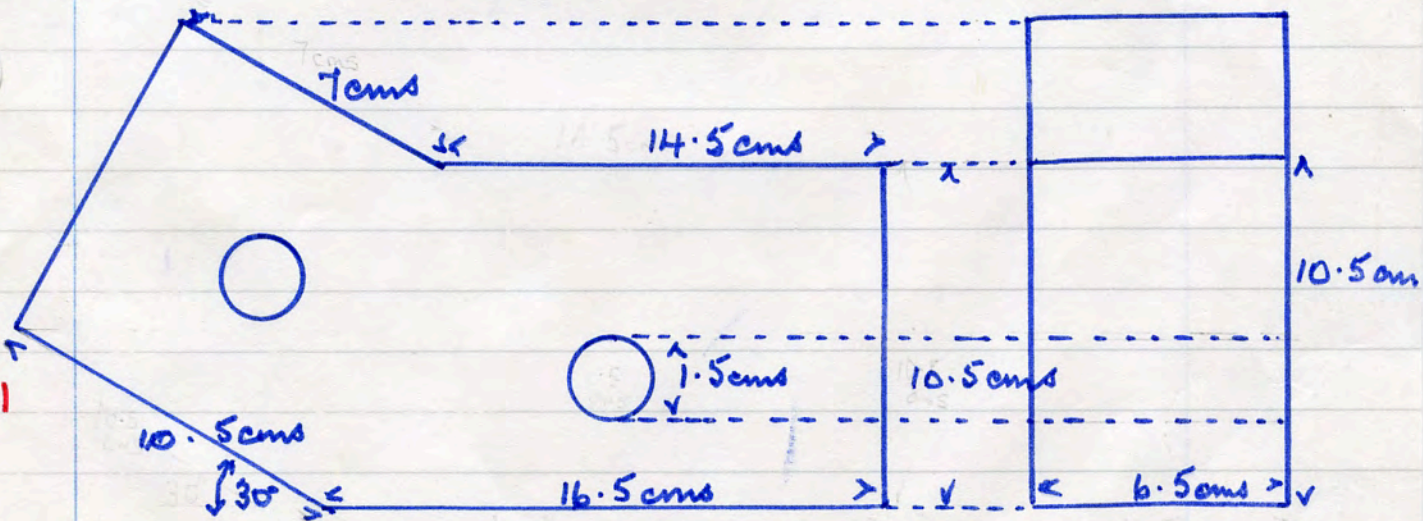 7cms
14.5cms
10.5cm
1.5cms
10.5cms
10.5cms
30°
16.5cms
6.5cms
1